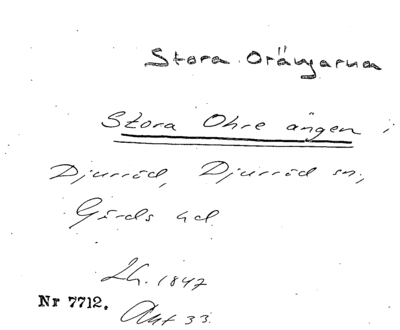 Stora Orängarna
Stora Ohre ängen i
Djurröd, Djurröd sn,
Gärds hd
Lh. 1847
Nr 7712.
Akt 33.